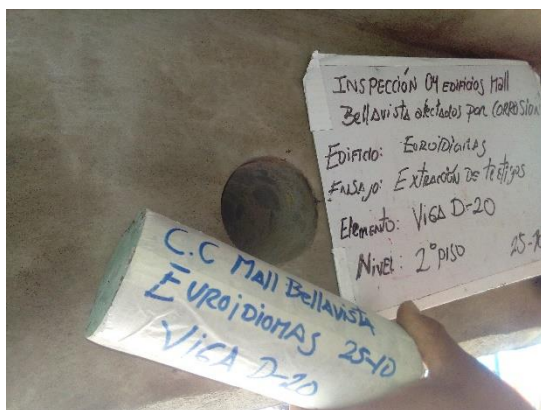 INSPECCIÓN 04 EDIFICIOS Mall
Bellavista afectados por CORROSIÓN
EDIFICIO: EUROIDIOMAS
ENSAYO: EXTRACCIÓN DE TESTIGOS
Elemento: VIGA D-20
NIVEL: 2° PISO 25-10
C.C MALL BELLAVISTA
EUROIDIOMAS 25-10
VIGA D-20